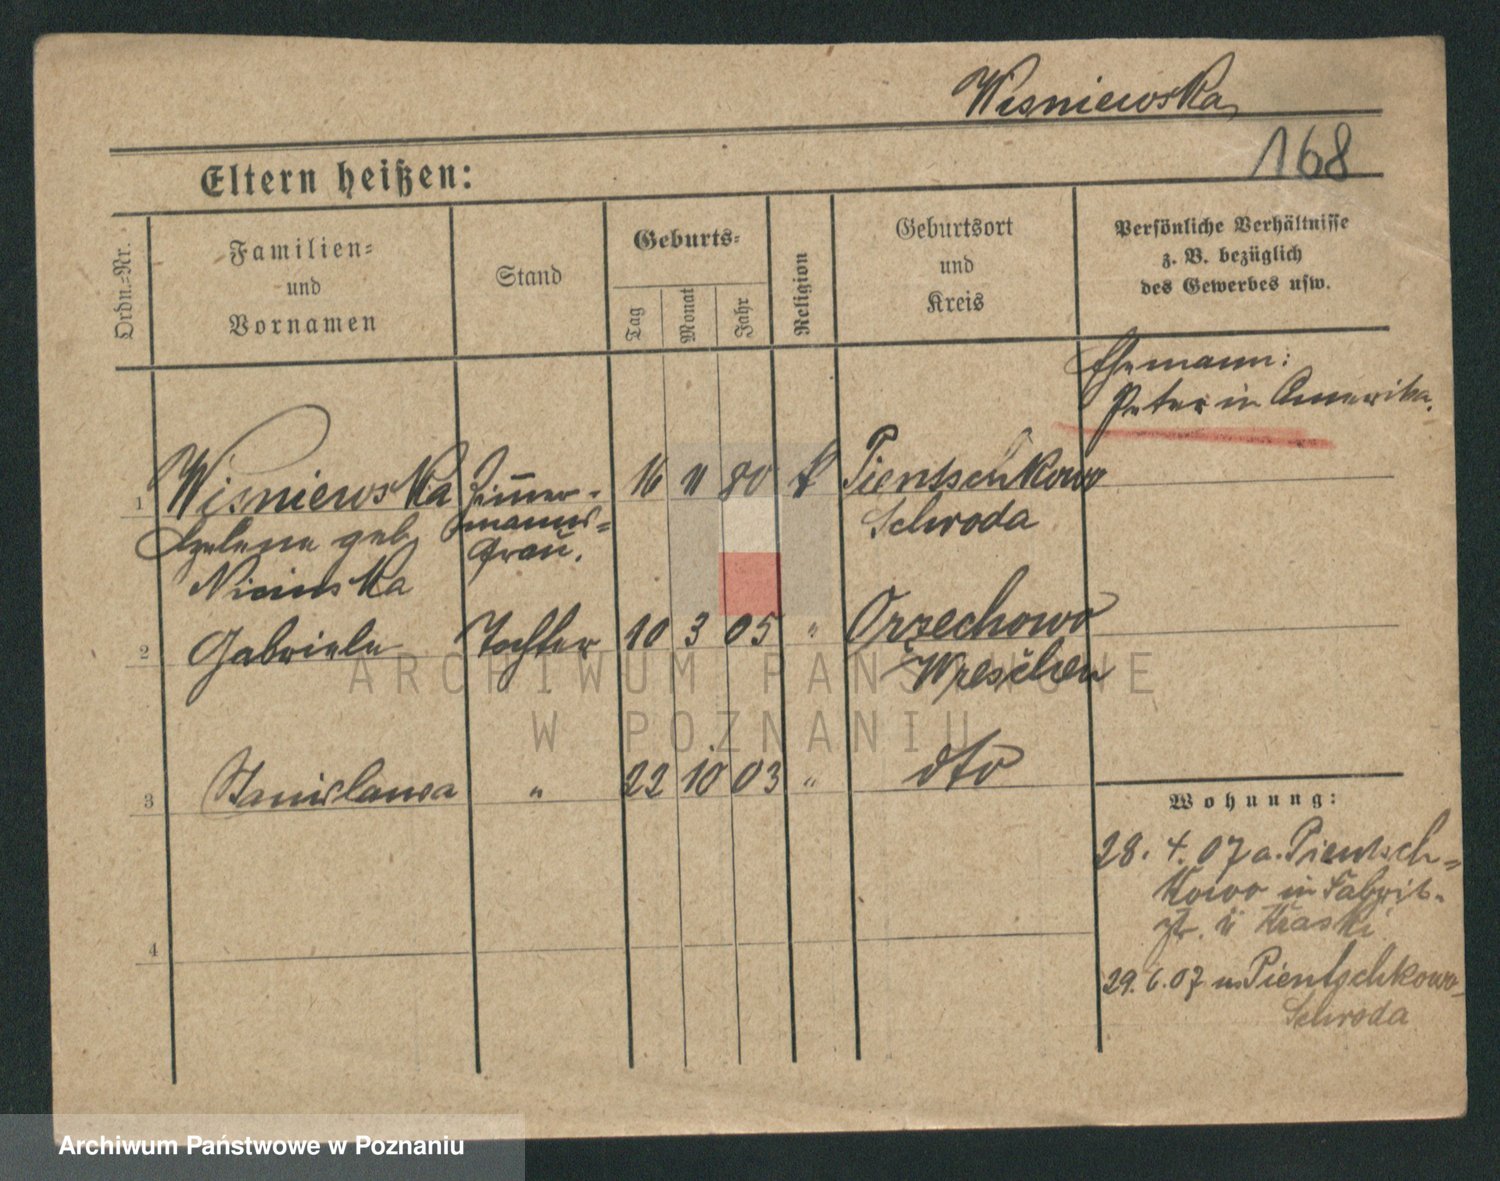 Wisniewska
168
Eltern heißen:
Ordn.-Nr.
Familien- und Vornamen
Stand
Geburts-
Tag
Monat
Jahr
Religion
Geburtsort und Kreis
Persönliche Verhältnisse
z. B. bezüglich
des Gewerbes usw.
Ehemann:
Peter in Amerika.
1 Wisniewska Zimmer- 16 11 80 k Pientschkowo
Helena geb. manns- Schroda
Niciuska frau.
2 Gabriele Tochter 10 3 05 " Orzechowo
Wreschen
3 Stanislawa " 22 10 03 " dto
4
Wohnung:
28. 4. 07 a. Pientsch-
kowo in Fabrik-
str. b Kraski
29. 6. 07 n. Pientschkowo
Schroda
ARCHIWUM PAŃSTWOWE
W POZNANIU
Archiwum Państwowe w Poznaniu